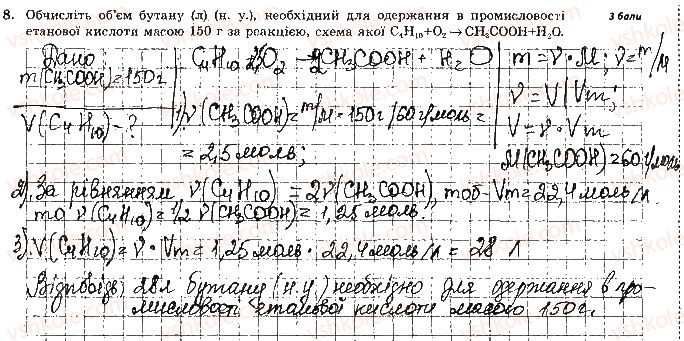 8. Обчисліть об'єм бутану (л) (н. у.), необхідний для одержання в промисловості 3 бали
етанової кислоти масою 150 г за реакцією, схема якої C₄H₁₀+O₂→CH₃COOH+H₂O.
Дано
m(CH₃COOH)=150г
V(C₄H₁₀)-?
C₄H₁₀ + O₂ → 2CH₃COOH + H₂O
1) ν(CH₃COOH)=m/M=150г/60г/моль=
=2,5моль;
m=ν·M; ν=m/M
ν=V/Vm;
V=ν·Vm
M(CH₃COOH)=60г/моль
2) За рівнянням ν(C₄H₁₀)=2ν(CH₃COOH), тоб Vm=22,4моль/л
то ν(C₄H₁₀)=1/2 ν(CH₃COOH)=1,25моль.
3) V(C₄H₁₀)=ν·Vm=1,25моль·22,4моль/л=28 л
Відповідь: 28л бутану (н.у) необхідно для одержання в про-
мисловості етанової кислоти масою 150г.